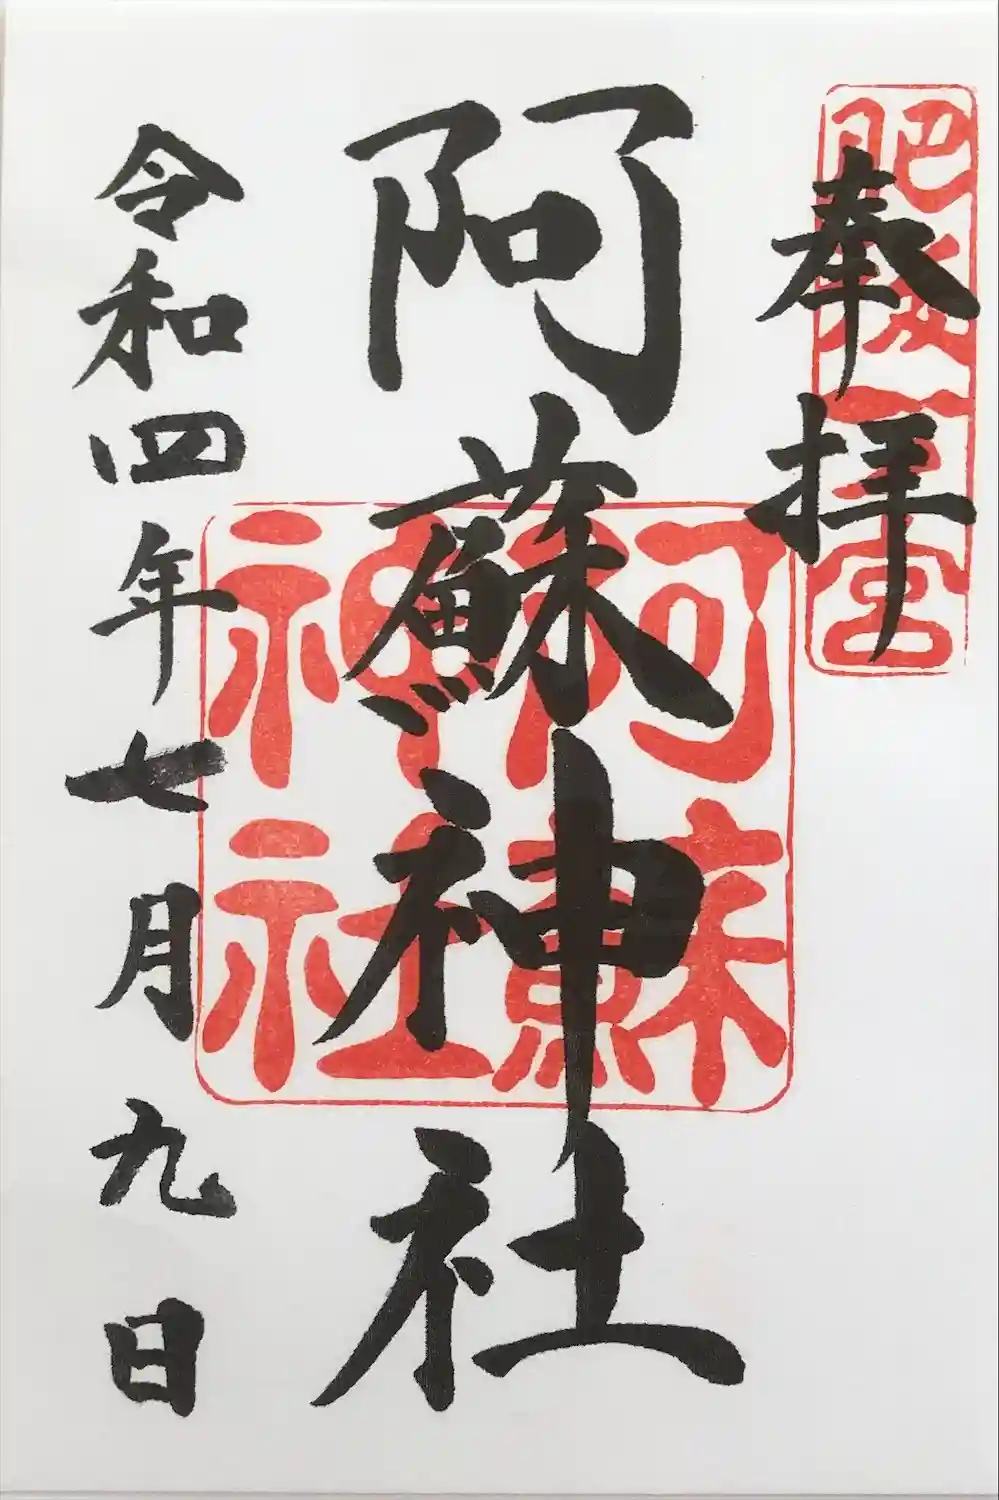 奉拝
肥後一之宮
阿蘇神社
阿蘇神社
令和四年七月九日